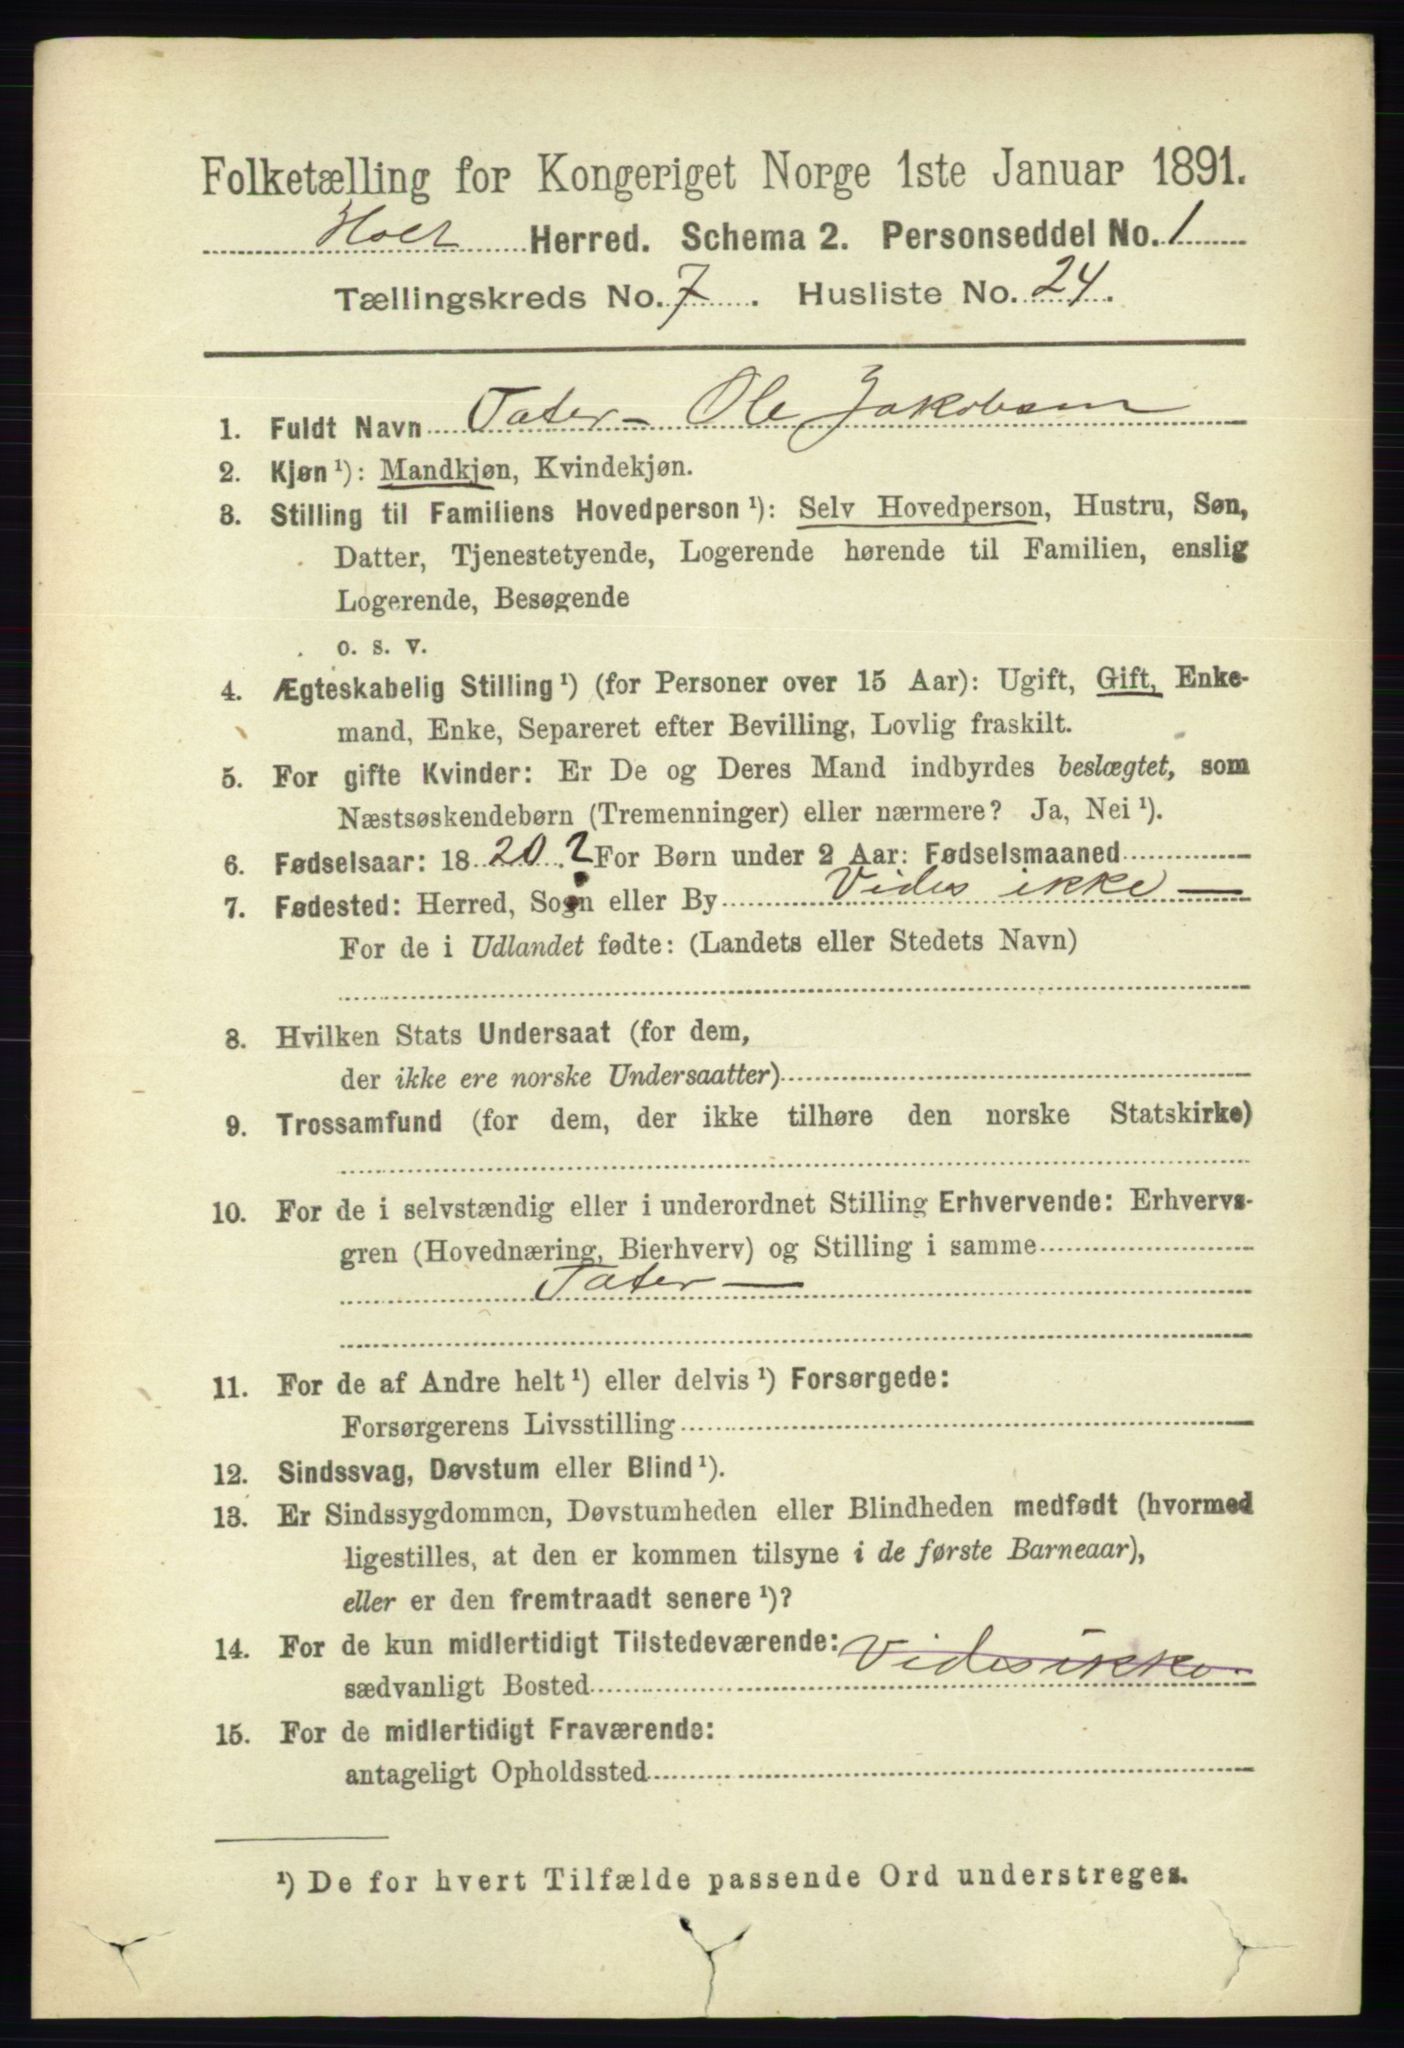 Folketælling for Kongeriget Norge 1ste Januar 1891.
Holt Herred. Schema 2. Personseddel No. 1
Tællingskreds No. 7. Husliste No. 24.
1. Fuldt Navn Tater- Ole Jakobsen
2. Kjøn ¹): Mandkjøn, Kvindekjøn.
3. Stilling til Familiens Hovedperson ¹): Selv Hovedperson, Hustru, Søn,
Datter, Tjenestetyende, Logerende hørende til Familien, enslig
Logerende, Besøgende
o. s. v.
4. Ægteskabelig Stilling ¹) (for Personer over 15 Aar): Ugift, Gift, Enke-
mand, Enke, Separeret efter Bevilling, Lovlig fraskilt.
5. For gifte Kvinder: Er De og Deres Mand indbyrdes beslægtet, som
Næstsøskendebørn (Tremenninger) eller nærmere? Ja, Nei ¹).
6. Fødselsaar: 1820.? For Børn under 2 Aar: Fødselsmaaned
7. Fødested: Herred, Sogn eller By Vides ikke
For de i Udlandet fødte: (Landets eller Stedets Navn)
8. Hvilken Stats Undersaat (for dem,
der ikke ere norske Undersaatter)
9. Trossamfund (for dem, der ikke tilhøre den norske Statskirke)
10. For de i selvstændig eller i underordnet Stilling Erhvervende: Erhvervs-
gren (Hovednæring, Bierhverv) og Stilling i samme
Tater
11. For de af Andre helt ¹) eller delvis ¹) Forsørgede:
Forsørgerens Livsstilling
12. Sindssvag, Døvstum eller Blind ¹).
13. Er Sindssygdommen, Døvstumheden eller Blindheden medfødt (hvormed
ligestilles, at den er kommen tilsyne i de første Barneaar),
eller er den fremtraadt senere ¹)?
14. For de kun midlertidigt Tilstedeværende: Vides ikke.
sædvanligt Bosted
15. For de midlertidigt Fraværende:
antageligt Opholdssted
¹) De for hvert Tilfælde passende Ord understreges.